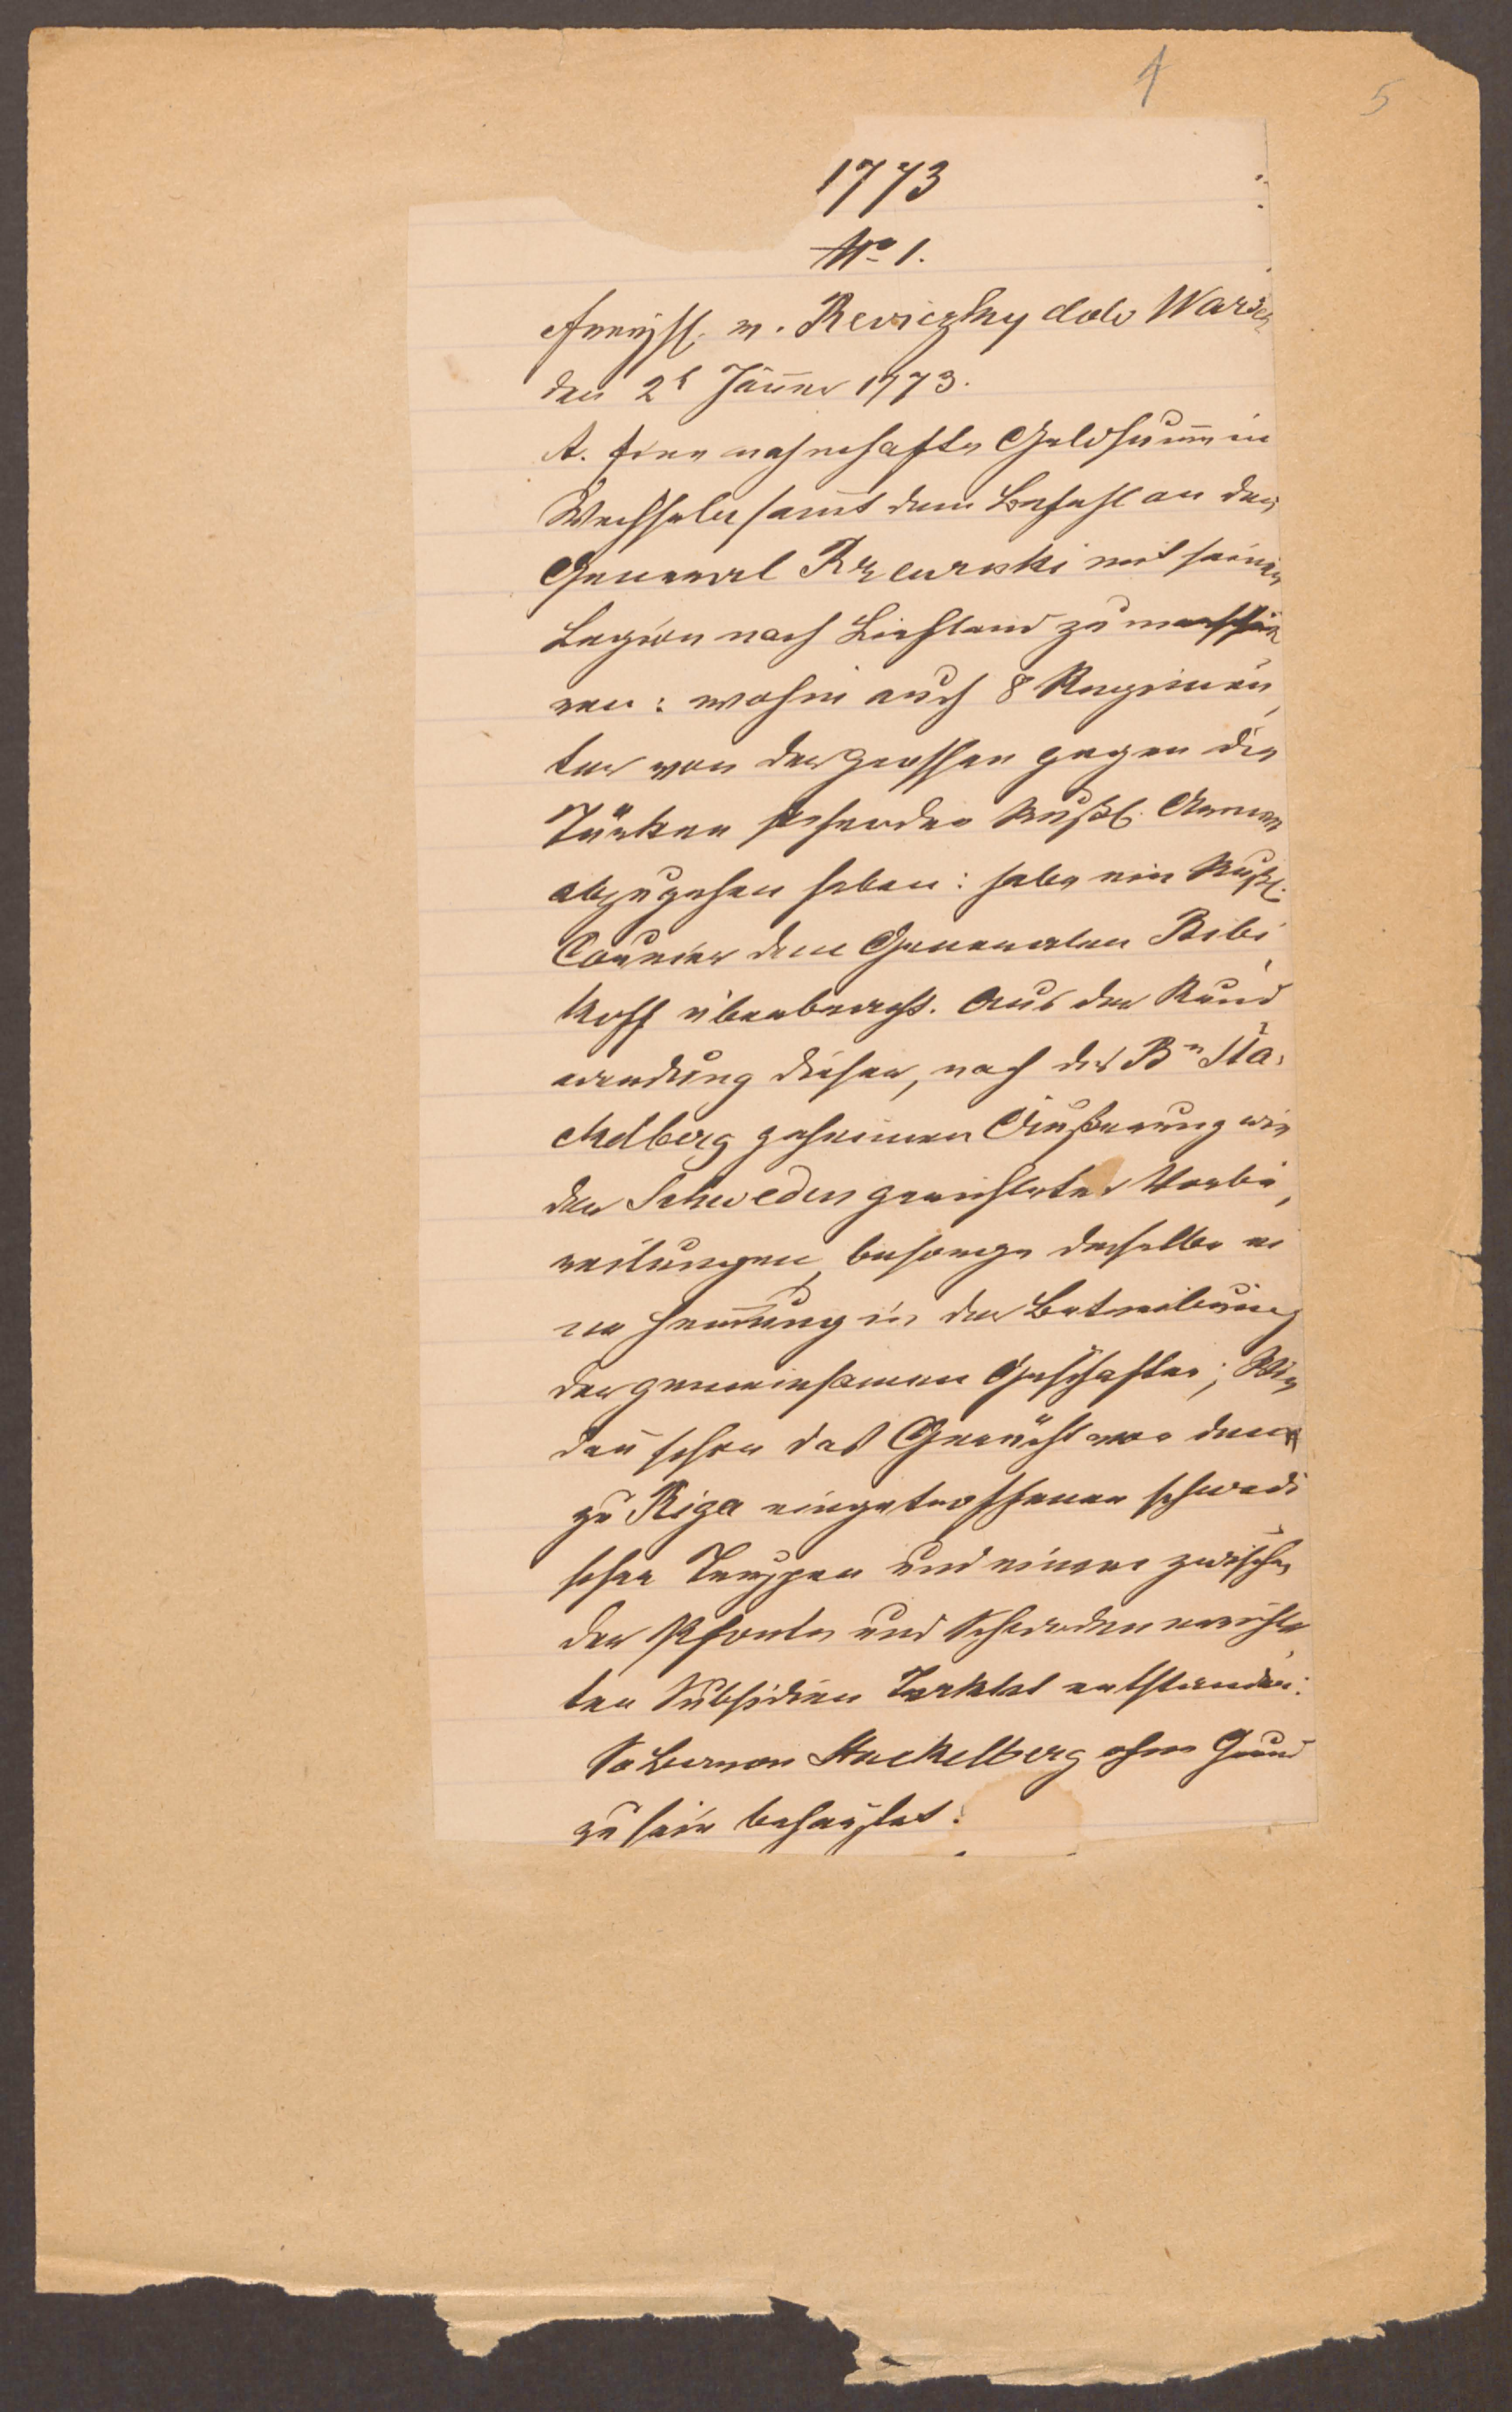 4
5
1773
No 1.
v. Reviczky ddo Warsch
den 2t Jänner 1773.
A. Eine nahmhafte Geldsumm in
Wechseln samt dem Befehl an den
General mit seiner
Legion nach Liefland zu marschie
ren: wohin auch 8 Regimen,
ter von der grossen gegen die
Türken stehenden Rußl. Armee
abzugehen haben: habe ein Rußl.
Courier dem Generalen Bibi,
koff überbracht. Aus der
dieser, nach des Bn Sta,
ckelberg geheimen Äußerung wie
der Schweden gerichteter Vorbe,
reitungen, besorge derselbe ei
ne Hemmung in der Betreibung
der gemeinsamen Geschäften;
dan schon das Gerücht von denen
zu Riga eingetroffenen schwedi
schen Truppen und einem zwischen
der Pforte und Schweden errichte,
ten Subsidien Tracktat entstanden:
So Baron Stackelberg ohne Grund
zu sein behauptet.